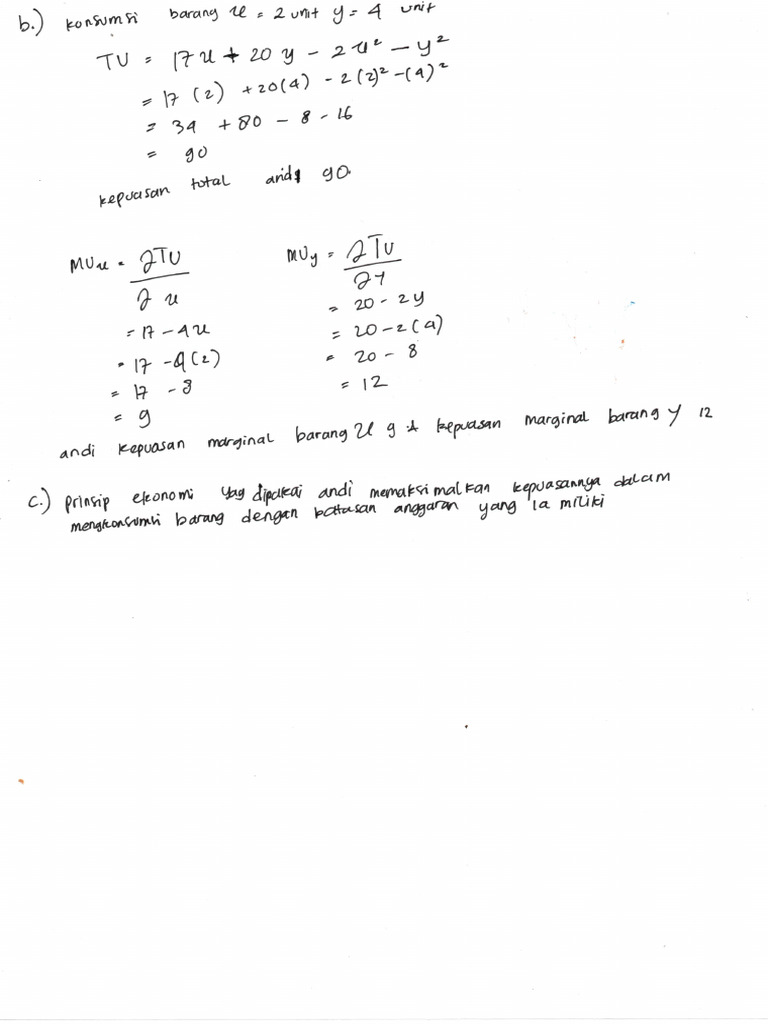 b.) konsumsi barang x = 2 unit y = 4 unit
TU = 17x + 20y - 2x² - y²
= 17 (2) + 20(4) - 2(2)² - (4)²
= 34 + 80 - 8 - 16
= 90
kepuasan total andi 90.
MUx = ∂TU / ∂x
MUy = ∂TU / ∂y
= 17 - 4x
= 20 - 2y
= 17 - 4(2)
= 20 - 2(4)
= 17 - 8
= 20 - 8
= 9
= 12
andi kepuasan marginal barang x 9 & kepuasan marginal barang y 12
c.) prinsip ekonomi yag dipakai andi memaksimalkan kepuasannya dalam
mengkonsumsi barang dengan batasan anggaran yang ia miliki